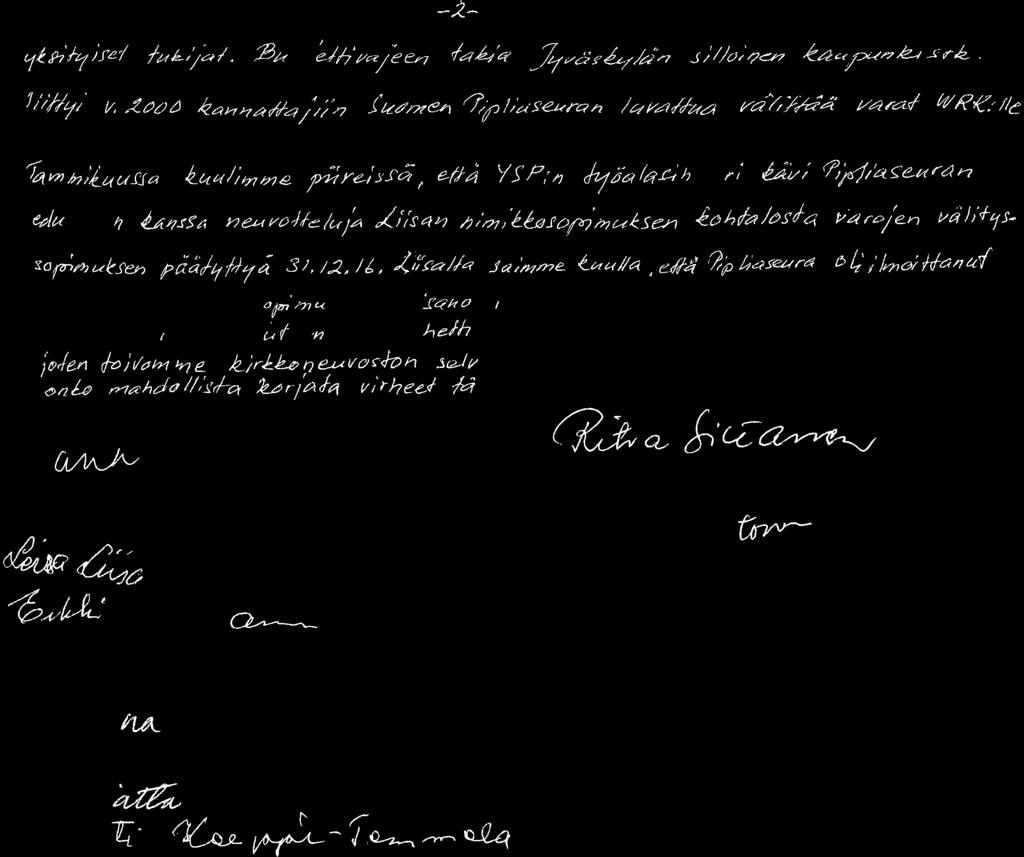 -2-
yksityiset tukijat. Bu ettivajeen takia Jyväskylän silloinen kaupunkisrk.
liittyi v. 2000 kannattajiin Suomen Pipliaseuran luvattua välittää varat WRK:lle
Tammikuussa kuulimme piireissä, että YSP:n työalasih ri kävi Pipliaseuran
edu n kanssa neuvotteluja Liisan nimikkosopimuksen kohtalosta varojen välitys-
sopimuksen päätyttyä 31.12.16. Liisalta saimme kuulla, että Pipliaseura oli ilmoittanut
opimu sano
ut n hett
joten toivomme kirkkoneuvoston selv
onko mahdollista korjata virheet tä
Ritva
ann
torn
Leisa Liisa
Erkki
na
atta